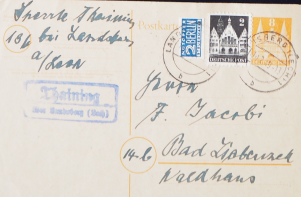 Thaining
bei Landsberg
a/Lech
Postkarte
Thaining
über Landsberg (Lech)
NOTOPFER
2 BERLIN
STEUERMARKE
DEUTSCHE POST
LANDSBERG
b
Herrn
F. Jacobi
14-b
Bad Liebenzell
Waldhaus